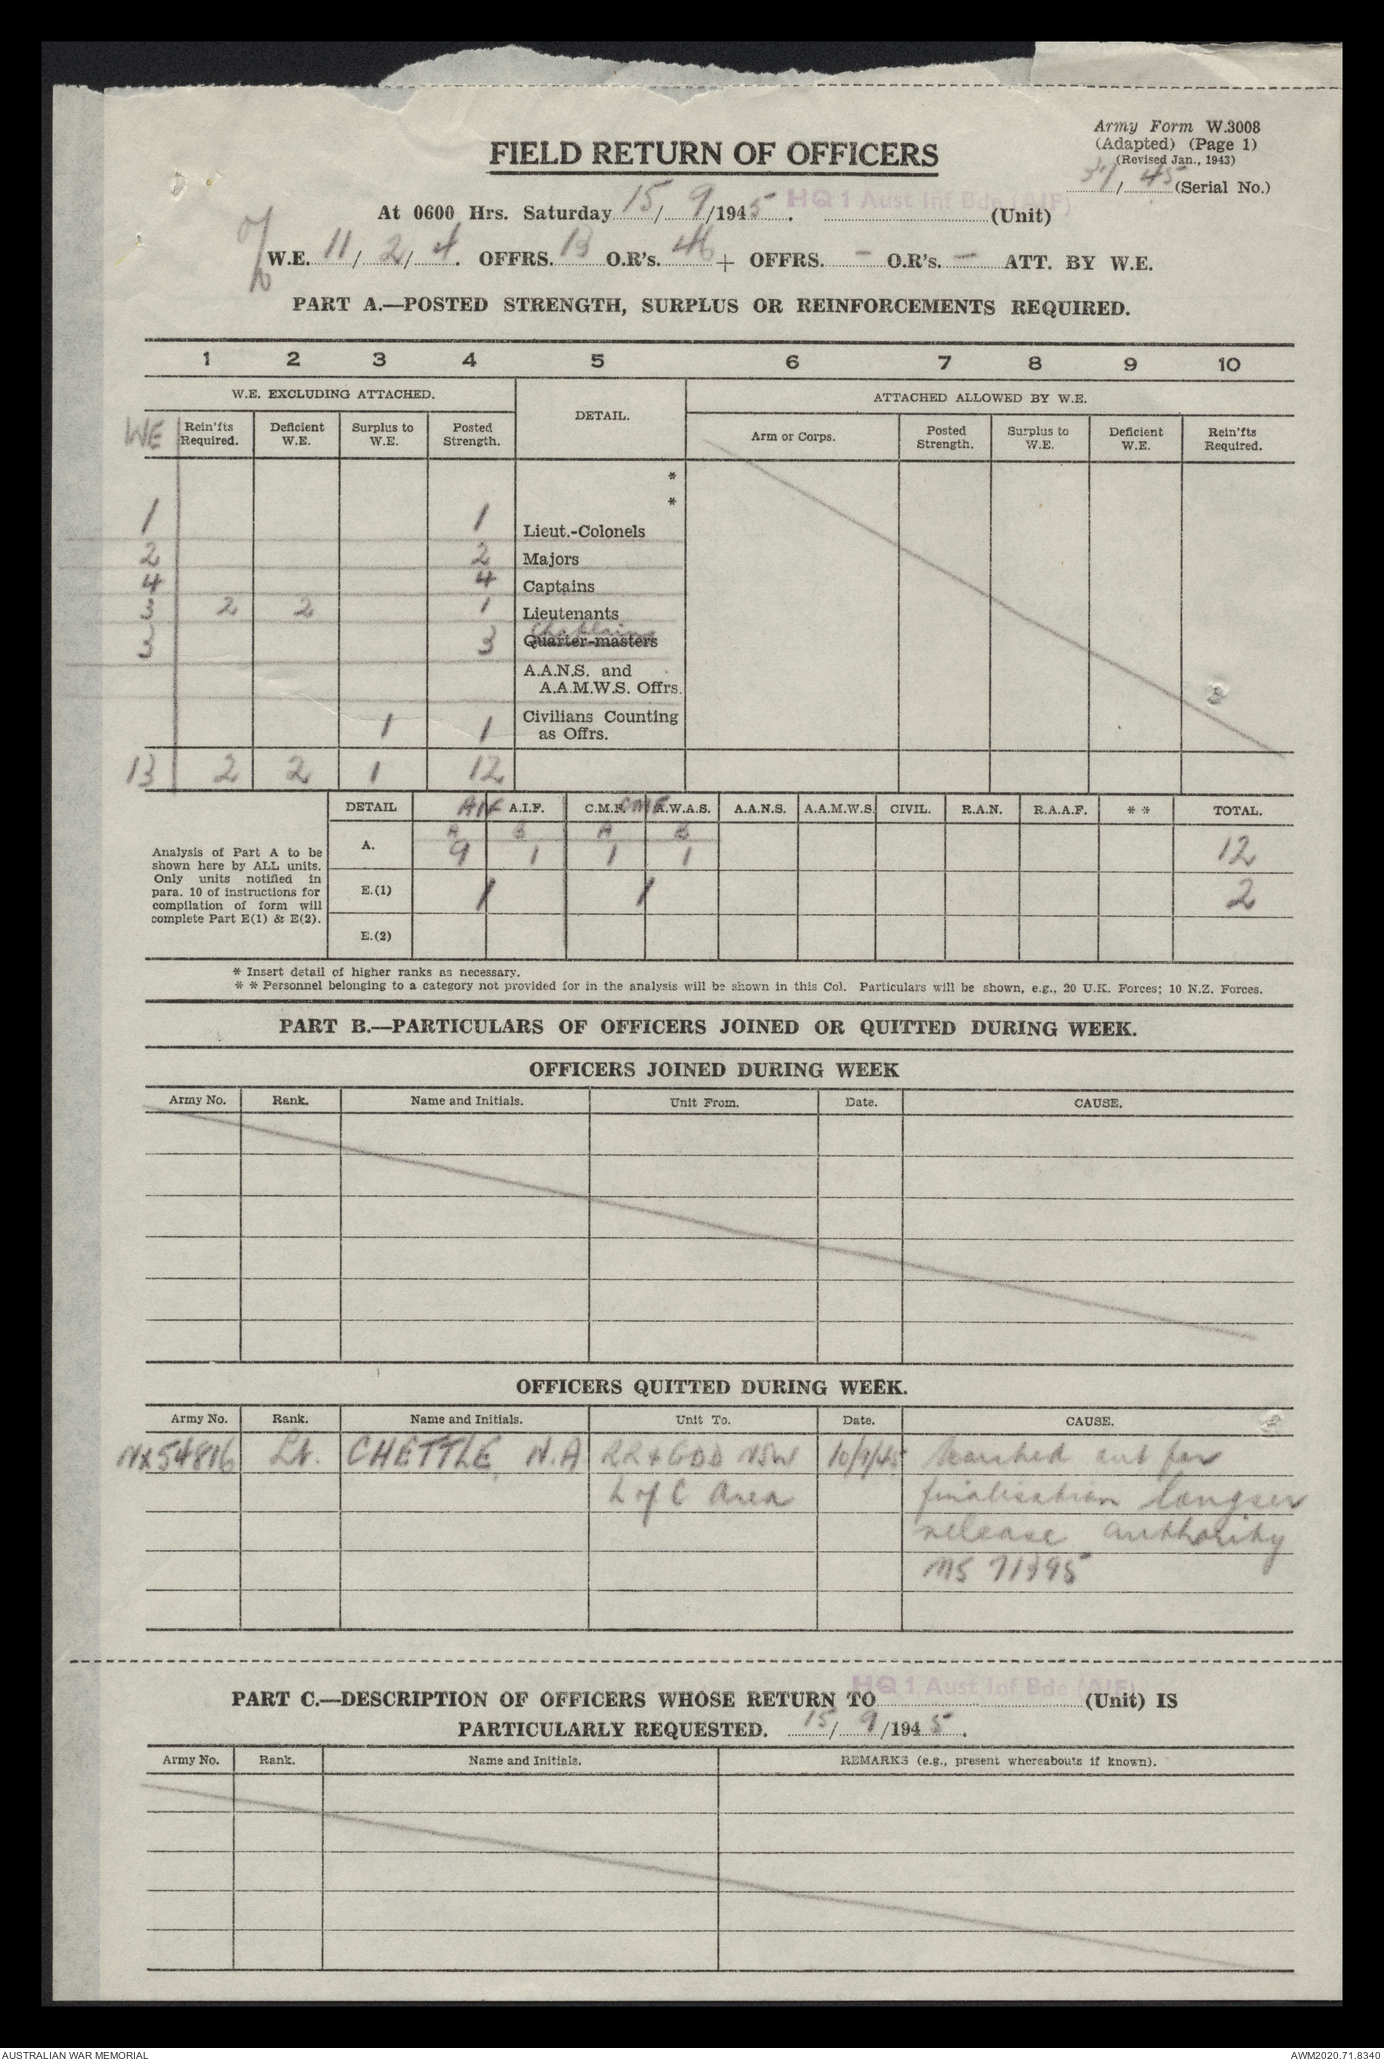 Army Form W.3008
(Adapted) (Page 1)
(Revised Jan., 1943)
37/45 (Serial No.)
FIELD RETURN OF OFFICERS
HQ 1 Aust Inf Bde (AIF)
At 0600 Hrs. Saturday 15/9/1945. (Unit)
W.E. 11/2/4. OFFRS. 13 O.R's. 46 + OFFRS. - O.R's. - ATT. BY W.E.
PART A.—POSTED STRENGTH, SURPLUS OR REINFORCEMENTS REQUIRED.
1 2 3 4 5 6 7 8 9 10
W.E. EXCLUDING ATTACHED. DETAIL. ATTACHED ALLOWED BY W.E.
WE Rein'fts Required. Deficient W.E. Surplus to W.E. Posted Strength. Arm or Corps. Posted Strength. Surplus to W.E. Deficient W.E. Rein'fts Required.
*
*
1 1 Lieut.-Colonels
2 2 Majors
4 4 Captains
3 2 2 1 Lieutenants
Chaplains
3 3 Quarter-masters
A.A.N.S. and
A.A.M.W.S. Offrs.
1 1 Civilians Counting
as Offrs.
13 2 2 1 12
DETAIL AIF A.I.F. C.M.F. CMF A.W.A.S. A.A.N.S. A.A.M.W.S. CIVIL. R.A.N. R.A.A.F. * * TOTAL.
A B A B
A. 9 1 1 1 12
E.(1) 1 1 2
E.(2)
Analysis of Part A to be
shown here by ALL units.
Only units notified in
para. 10 of instructions for
compilation of form will
complete Part E(1) & E(2).
* Insert detail of higher ranks as necessary.
* * Personnel belonging to a category not provided for in the analysis will be shown in this Col. Particulars will be shown, e.g., 20 U.K. Forces; 10 N.Z. Forces.
PART B.—PARTICULARS OF OFFICERS JOINED OR QUITTED DURING WEEK.
OFFICERS JOINED DURING WEEK
Army No. Rank. Name and Initials. Unit From. Date. CAUSE.
OFFICERS QUITTED DURING WEEK.
Army No. Rank. Name and Initials. Unit To. Date. CAUSE.
NX54816 Lt. CHETTLE, N.A. RR & GDD NSW 10/9/45 Marched out for
L of C Area finalisation longser
release authority
MS 71395
HQ 1 Aust Inf Bde (AIF)
PART C.—DESCRIPTION OF OFFICERS WHOSE RETURN TO (Unit) IS
PARTICULARLY REQUESTED. 15/9/1945.
Army No. Rank. Name and Initials. REMARKS (e.g., present whereabouts if known).
AUSTRALIAN WAR MEMORIAL AWM2020.71.8340